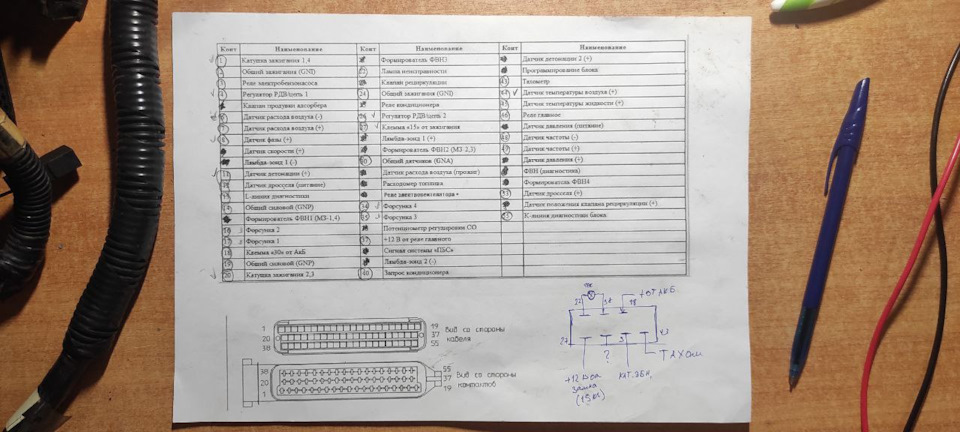 Конт Наименование Конт Наименование Конт Наименование
1 Катушка зажигания 1,4 Формирователь ФВН3 Датчик детонации 2 (+)
2 Общий зажигания (GNI) 22 Лампа неисправности Программирование блока
3 Реле электробензонасоса Клапан рециркуляции 43 Тахометр
4 Регулятор РДВ/цепь 1 24 Общий зажигания (GNI) Датчик температуры воздуха (+)
Клапан продувки адсорбера Реле кондиционера 45 Датчик температуры жидкости (+)
6 Датчик расхода воздуха (-) 26 Регулятор РДВ/цепь 2 46 Реле главное
7 Датчик расхода воздуха (+) 27 Клемма «15» от зажигания Датчик давления (питание)
8 Датчик фазы (+) Лямбда-зонд 1 (+) 48 Датчик частоты (-)
Датчик скорости (+) Формирователь ФВН2 (МЗ-2,3) 49 Датчик частоты (+)
Лямбда-зонд 1 (-) 30 Общий датчиков (GNA) Датчик давления (+)
11 Датчик детонации (+) Датчик расхода воздуха (прожиг) ФВН (диагностика)
Датчик дросселя (питание) Расходомер топлива Формирователь ФВН4
13 L-линия диагностики Реле электровентилятора 53 Датчик дросселя (+)
14 Общий силовой (GNP) 34 Форсунка 4 Датчик положения клапана рециркуляции (+)
Формирователь ФВН1 (МЗ-1,4) 35 Форсунка 3 55 К-линия диагностики блока
16 Форсунка 2 Потенциометр регулировки СО
17 Форсунка 1 37 +12 В от реле главного
18 Клемма «30» от АкБ Сигнал системы «ПБС»
19 Общий силовой (GNP) Лямбда-зонд 2 (-)
20 Катушка зажигания 2,3 40 Запрос кондиционера
22 18 +ОТ АКБ
27 ? 3 43
ТАХОМ
+12
(15кл)
1 19 Вид со стороны
20 37 кабеля
38 55
38 55 Вид со стороны
20 37
1 19